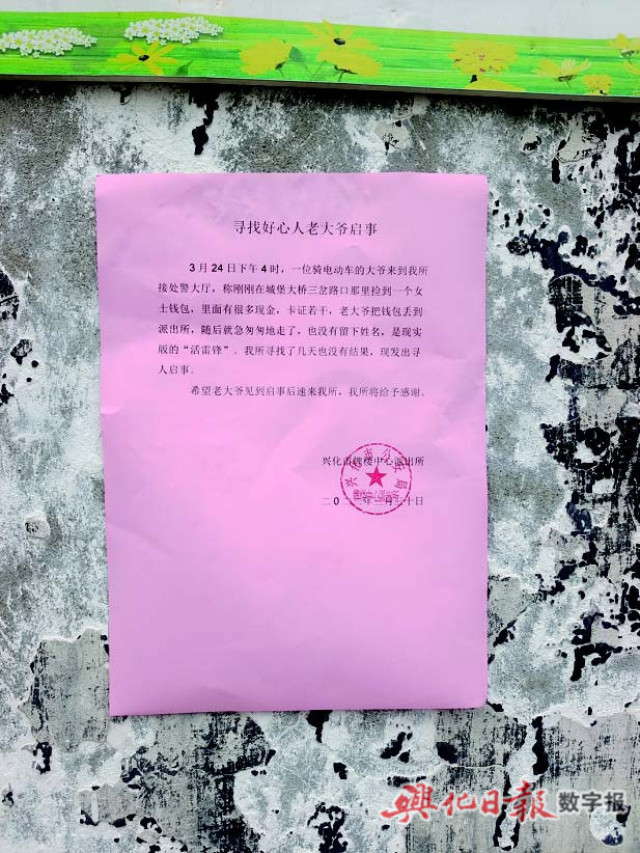 寻找好心人老大爷启事
3月24日下午4时，一位骑电动车的大爷来到我所
接处警大厅，称刚刚在城堡大桥三岔路口那里捡到一个女
士钱包，里面有很多现金，卡证若干，老大爷把钱包丢到
派出所，随后就急匆匆地走了，也没有留下姓名，是现实
版的“活雷锋”。我所寻找了几天也没有结果，现发出寻
人启事。
希望老大爷见到启事后速来我所，我所将给予感谢。
兴化市牌楼中心派出所
二0二 年三月三十日
興化日報 数字报